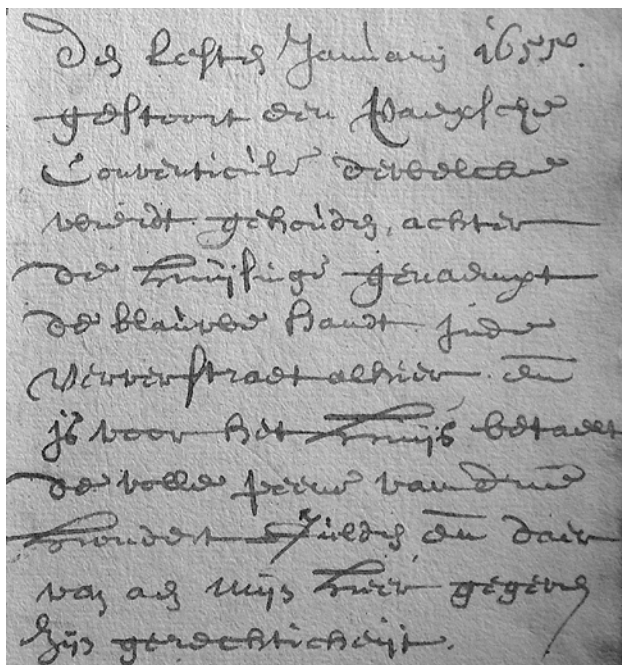 Den sesten Januarij 1655.
gestoort een Paepsche
Conventicule dewelcke
wierdt gehouden, achter
de huijsinge genaempt
de blauwe handt inde
Verwerstraet alhier en
is voor het huijs betaelt
de volle peene van drie
hondert Guldens en daer
van aen mijn heer gegeven
zijn gerechticheijt.